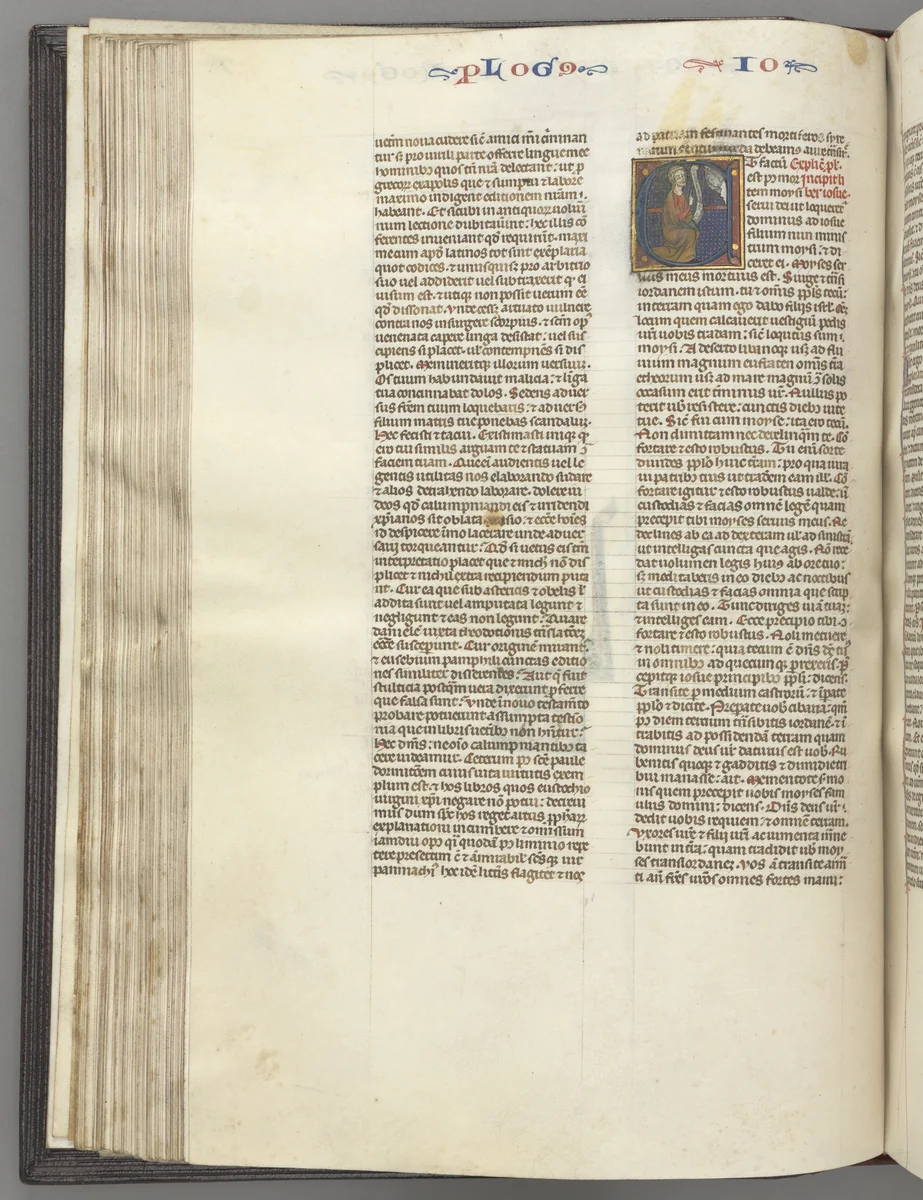 PLOGꝰ
IO
uetm noua cudere sič amici mei ciminan
tur si pro uirili parte offerre lingue mee
hominibꝰ quos tm nia delectant: ut p
grecoꝝ exapolis que & sumptu & labore
maximo indigent editionem nram
habeant. Et sicubi in antiquoꝝ uolumi
num lectione dubitauint: hec illis cō
ferentes inueniant qd requirunt. maxi
me cum apd latinos tot sint exēplaria
quot codices. & unusquisqꝫ pro arbitrio
suo uel addiderit uel subtraxerit qd ei
uisum est. & utiqꝫ non possit uerum eē
qd dissonat. Vnde cess& arcuato uulnere
contra nos insurgere scorpius. & scm opꝰ
uenenata carpere linga desistat: uel sus
cipiens si placet. ul contempnēs si dis
plicet. Memineritqꝫ illorum uersuum.
Os tuum habundauit malicia: & liga
tua concinnabat dolos. Sedens aduer
sus frem tuum loquebaris: & aduersꝰ
filium matris tue ponebas scandalum.
Hec fecisti & tacui. Existimasti iniqꝫ qd
ero tui similis arguam te & statuam ꝯ
faciem tuam. Que enī audientis uel le
gentis utilitas nos elaborando sudare
& alios detrahendo laborare. dolere iu
deos qd calumpniandi eis & irridendi
xpianos sit oblata occasio. & ecce hoīes
id despicere immo lacerare unde aduer
sarij torqueantur: Qd si uetus eis tm
interpretatio placet que & mich nō dis
plicet & nichil extra recipiendum puta
nt. Cur ea que sub astericis & obelis ul
addita sunt uel amputata legunt &
negligunt & eas non legunt: Quare
danielē iuxta theodotionis tnslacōeꝫ
ecce susceperunt. Cur origenē mirantr
& eusebium pamphili cunctas editio
nes similiter disserentes: Aut que fuit
stulticia postqm uera dixerunt pferre
que falsa sunt: Vnde ī nouo testamto
probare potuerunt assumpta testio
nia que in libris uetibꝰ non hntur:
Hec dims: ne oīo calumpniantibꝰ ta
cere uideamur. Ceterum post sce paule
dormitōem cuius uita uirtutis exem
plum est. & hos libros quos eustochio
uirgini xpi negare nō potui: decreui
mus dum sps hos reget artus pphaꝝ
explanationi incumbere & omissum
iamdiu opꝰ qi quodā postliminio repe
tere presertim ē & amirabil scsqꝫ uir
panmachiꝰ hec idē litis flagitet & nos
ad patriam festinantes mortiferos syre
narum cantus surda debeamꝰ aure ītsire.
T factū Explic pl.
est post mor Incipit li
tem moysi ber iosue.
serui dei ut loqueret
dominus ad iosue
filium nun minis
trum moysi: & di
ceret ei. Moyses ser
uus meus mortuus est. Surge & tnsi
iordanem istum. tu & omīs ppls tecū:
in terram quam ego dabo filijs isrl. Oēꝫ
locum quem calcauerit uestigiū pedis
uri uobis tradam: sič locutus sum
moysi: A deserto & libano usqꝫ ad flu
uium magnum eufraten omīs tra
etheorum usqꝫ ad mare magnū ꝯ solis
occasum erit terminus ur. Nullus po
terit ub resistere: cunctis diebꝰ uite
tue. Sič fui cum moyse: ita ero tecū.
Non dimittam nec derelinqm te. Cō
fortare & esto robustus. Tu eni sorte
diuides pplo huic tram: pro qua iura
ui patribꝰ tuis ut tradem eam ill. Cō
fortare igitur & esto robustus ualde: ut
custodias & facias omnē legē quam
precepit tibi moyses seruus meus. Ne
declines ab ea ad dexteram ul ad sinistrā
ut intelligas cuncta que agis. Nō rece
dat uolumen legis huiꝰ ab ore tuo:
sꝫ meditaberis in eo diebꝰ ac noctibus
ut custodias & facias omnia que scrip
ta sunt in eo. Tunc diriges uiā tuaꝫ:
& intelliges eam. Ecce precipio tibi
fortare & esto robustus. Noli metuere
& noli timere: quia tecum ē dns ds tuꝰ
in omnibꝰ ad quecunqꝫ prexeris. P
cepitqꝫ iosue principibꝰ ppli: dicens.
Transite p medium castrorū: & īpate
pplo & dicite. Preparate uobꝰ cibaria: qm
post diem tertium tnsibitis iordanē: & ī
trabitis ad possidendā terram quam
dominus deus ur daturus est uob. Ru
benitis quoqꝫ & gadditis & dimidiem
bui manasse: ait. Mementote smo
nis quem precepit uobis moyses fam
ulus domini: dicens. Dns deus ur
dedit uobis requiem: & omnē terram.
Vxores ure & filij uri ac iumenta mane
bunt in tra: quam tradidit ub moy
ses trans iordaneꝫ. Vos ā transite armi
ti an fres uros omnes fortes manu: